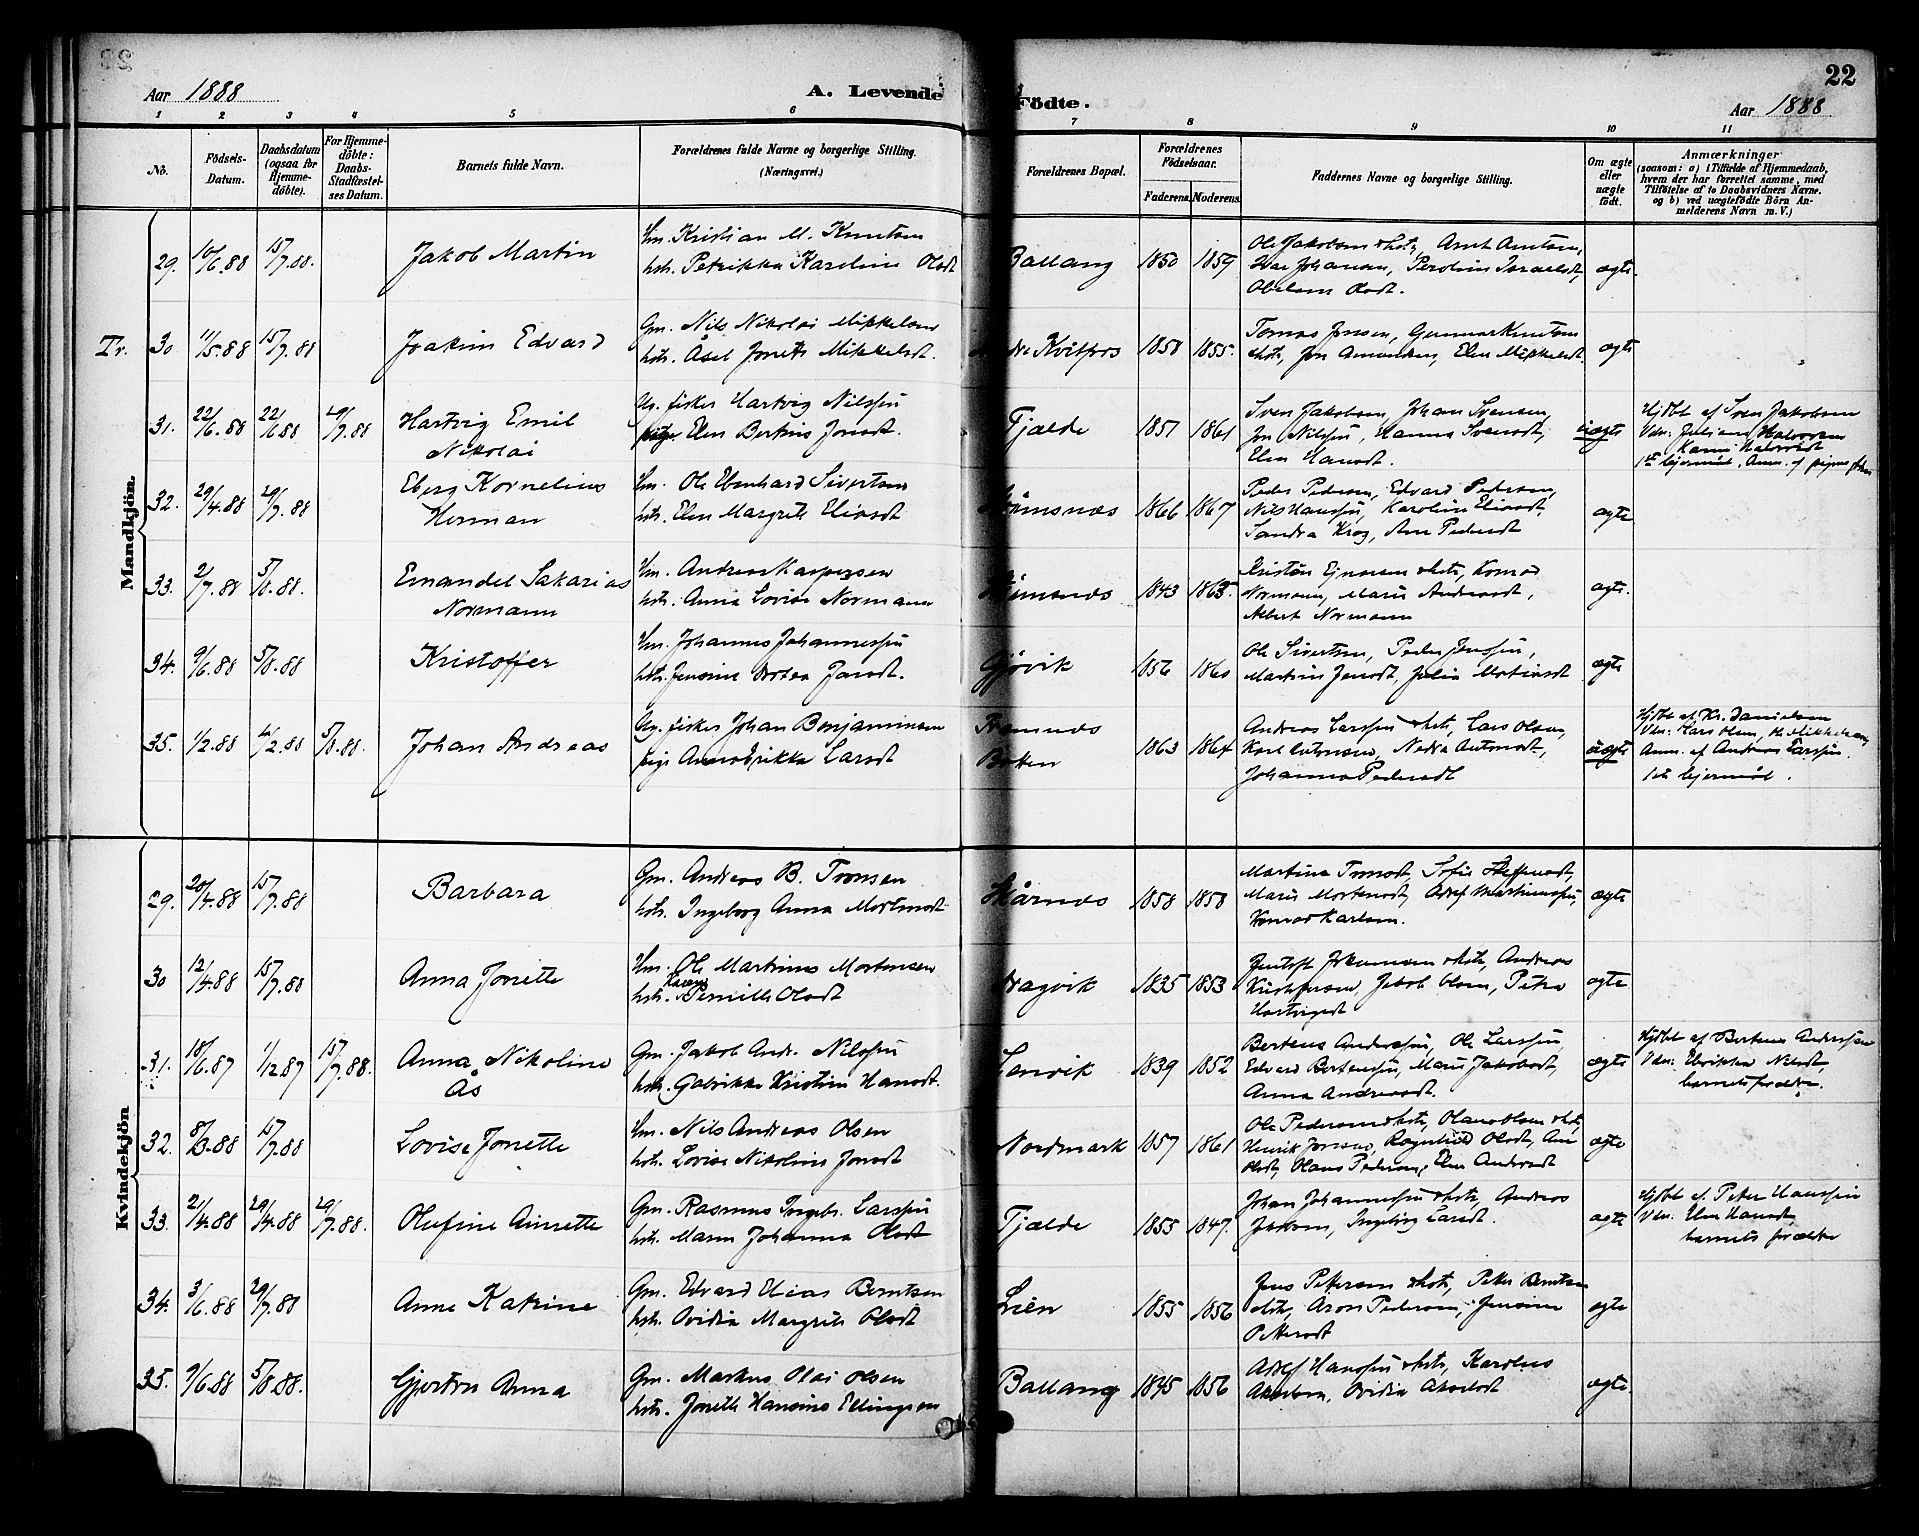 22
Aar 1888
A. Levende Födte.
Aar 1888
1 2 3 4 5 6 7 8 9 10 11
No.
Födsels-Datum.
Daabsdatum (ogsaa for Hjemme-döbte).
For Hjemme-döbte: Daabs-Stadfæstel-ses Datum.
Barnets fulde Navn.
Forældrenes fulde Navne og borgerlige Stilling.
(Næringsvei.)
Forældrenes Bopæl.
Forældrenes Födselsaar.
Faderens. Moderens.
Faddernes Navne og borgerlige Stilling.
Om ægte eller uægte födt.
Anmærkninger
(saasom: a) i Tilfælde af Hjemmedaab,
hvem der har forrettet samme, med
Tilföielse af to Daabsvidners Navne.
og b) ved uægtefödte Börn An-
melderens Navn m. V.)
Mandkjön.
29. 10/6.88 15/7.88. Jakob Martin
Im. Kristian M. Knutsen
hstr. Petrikka Karoline Olsdt
Ballang 1850 1859
Ole Jakobsen & hstr, Arnt Arntsen,
Johansen, Israelsdt,
Olsdt.
ægte.
Tr. 30. 11/5.88 15/7.88 Joakim Edvard
Gm. Nils Nikolai Mikkelsen
hstr. Åsel Jonette Mikkelsdt.
Kvitfors 1858 1855.
Tomas Jensen, Gunnar Knutsen
& hstr, Jon Amundsen, Elen Mikkelsdt.
ægte
31. 22/6.88 22/6.88 29/7.88 Hartvig Emil
Nikolai
Ug. fisker Hartvig Nilssen
pige Elen Bertine Jonsdt.
Fjælde 1857 1861
Sven Jakobsen, Johan Svensen,
Jon Nilssen, Hanna Svensdt,
Elen Hansdt.
uægte
Hjdbt af Sven Jakobsen
Vdn: Juliane Halvorsen
Karen Halvorsdt
1ste leiermaal. Anm. af pigens
32. 29/4.88 29/7.88 Eberg Kornelius
Herman
Im. Ole Ebenhard Sivertsen
hstr. Elen Margrete Eliasdt
1866 1867
Peder Pedersen, Edvard Petersen,
Nils Hanssen, Karoline Eliasdt,
Sandra Krog, Ane Pedersdt
ægte
33. 2/7.88 5/8.88. Emandel Sakarias
Normann
Im. Andreas Kaspersen
hstr. Anna Lovise Normann
1843 1863.
Kristen Ejnarsen & hstr, Konrad
Normann, Marie Andreasdt,
Albert Normann
ægte.
34. 9/6.88 5/8.88 Kristoffer
Im. Johannes Johannessen
hstr. Jensine Dortea Jonsdt.
Gjøvik 1856 1860
Ole Sivertsen, Peder Jenssen,
Martine Jensdt, Julia Matiasdt
ægte
35. 1/2.88 4/2.88 5/8.88. Johan Andreas
Ug. fisker Johan Benjaminsen
pige Larsdt
Framnes
Botten
1863 1864
Andreas Larssen & hstr, Lars Olsen,
Karl Antonsen, Nedia Antonsdt,
Johanna Pedersdt
uægte
Hjdbt af Kr. Danielsen
Vdn: Lars Olsen, Ole Mikkelsen,
Anm. af Andreas Larssen.
1ste leiermål.
Kvindekjön
29. 20/4.88 15/7.88 Barbara
Gm. Andreas B. Tronsen
hstr. Ingeborg Anna Mortensdt
Skårnes 1858 1858
Martine Tronsdt, Sofie Steffensdt,
Marie Mortensdt, Adolf Martinussen,
Konrad Karlsen.
ægte
30 12/4.88 15/7.88 Anna Jonette
Im. Ole Martinus Mortensen
hstr. Karen Pernille Olsdt
Dragvik 1835 1853
Johansen & hstr, Andreas
Kristofersen, Jakob Olsen, Petra
Hartvigsdt
ægte
31. 18/6.87 1/12.87 15/7.88. Anna Nikoline
Ås
Gm. Jakob Andr. Nilssen
hstr. Gabrikke Kristine Hansdt.
Lenvik 1839 1852
Berteus Anderssen, Ole Larssen,
Edvard Bertensen, Marie Jakobsdt,
Anna Andreasdt.
ægte
Hjdbt af Berteus Anderssen
Vdn: Ulrikka Nilsdt,
barnets forældre.
32. 8/3.88 15/7.88 Lovise Jonette
Im. Nils Andreas Olsen
hstr. Lovise Nikoline Jonsdt
Nordmark 1857 1861
Ole Pedersen & hstr, Olaus Olsen & hstr,
Henrik Jonsen, Ragnhild Olsdt, Ane
Olsdt, Olaus Pedersen, Elen Andersdt
ægte
33. 2/4.88 29/4.88 29/7.88. Olufine Ainette
Gm. Rasmus Ingebr. Larssen
hstr. Maren Johanna Olsdt
Fjælde 1855 1847.
Johan Johannessen & hstr, Andreas
Jakobsen, Ingeborg Larsdt.
ægte
Hjdbt af Peter Hanssen
Vdn: Elen Hansdt,
barnets forældre
34. 3/6.88 29/7.88 Anne Katrine
Gm. Edvard Elias Berntsen
hstr. Ovidia Margrete Olsdt
Lien 1855 1856
Jens Pettersen & hstr, Peter Berntsen
& hstr, Aron Pedersen, Jensine
Pettersdt
ægte
35. 9/6.88 5/8.88. Gjertru Anna
Gm. Markus Olai Olsen
hstr. Jonette Hansine Ellingsen
Ballang 1845 1856
Adolf Hanssen & hstr, Karolus
Akselsen, Ovidia Akselsdt
ægte.